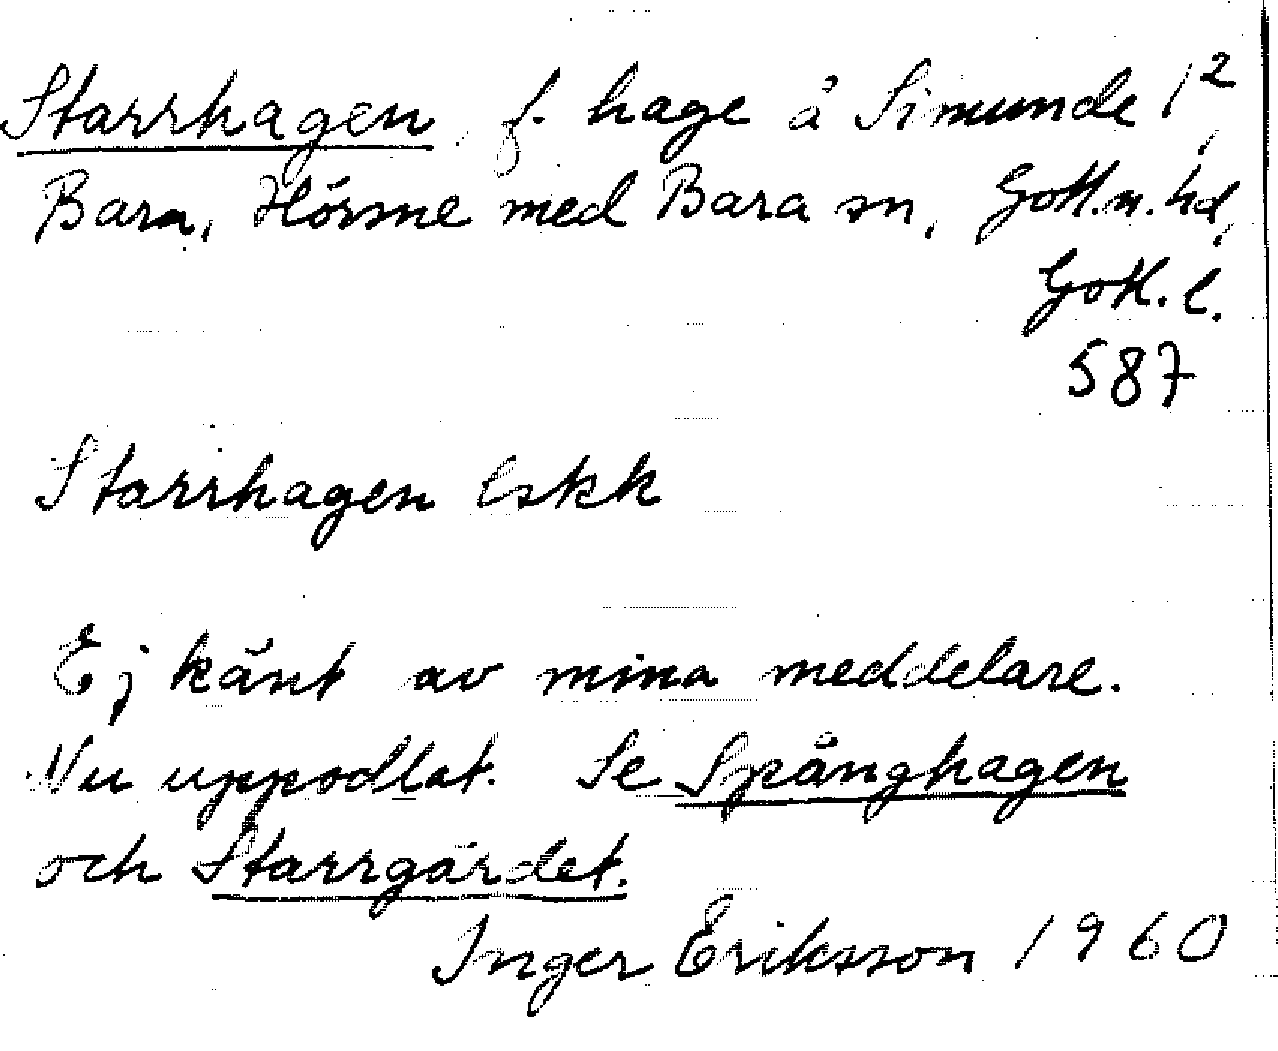 Starrhagen, f. hage å Simunde 1²,
Bara, Hörsne med Bara sn, Gotl.n. hd,
Gotl. l.
587
Starrhagen lskk
Ej känt av mina meddelare.
Nu uppodlat. Se Spånghagen
och Starrgärdet.
Inger Eriksson 1960